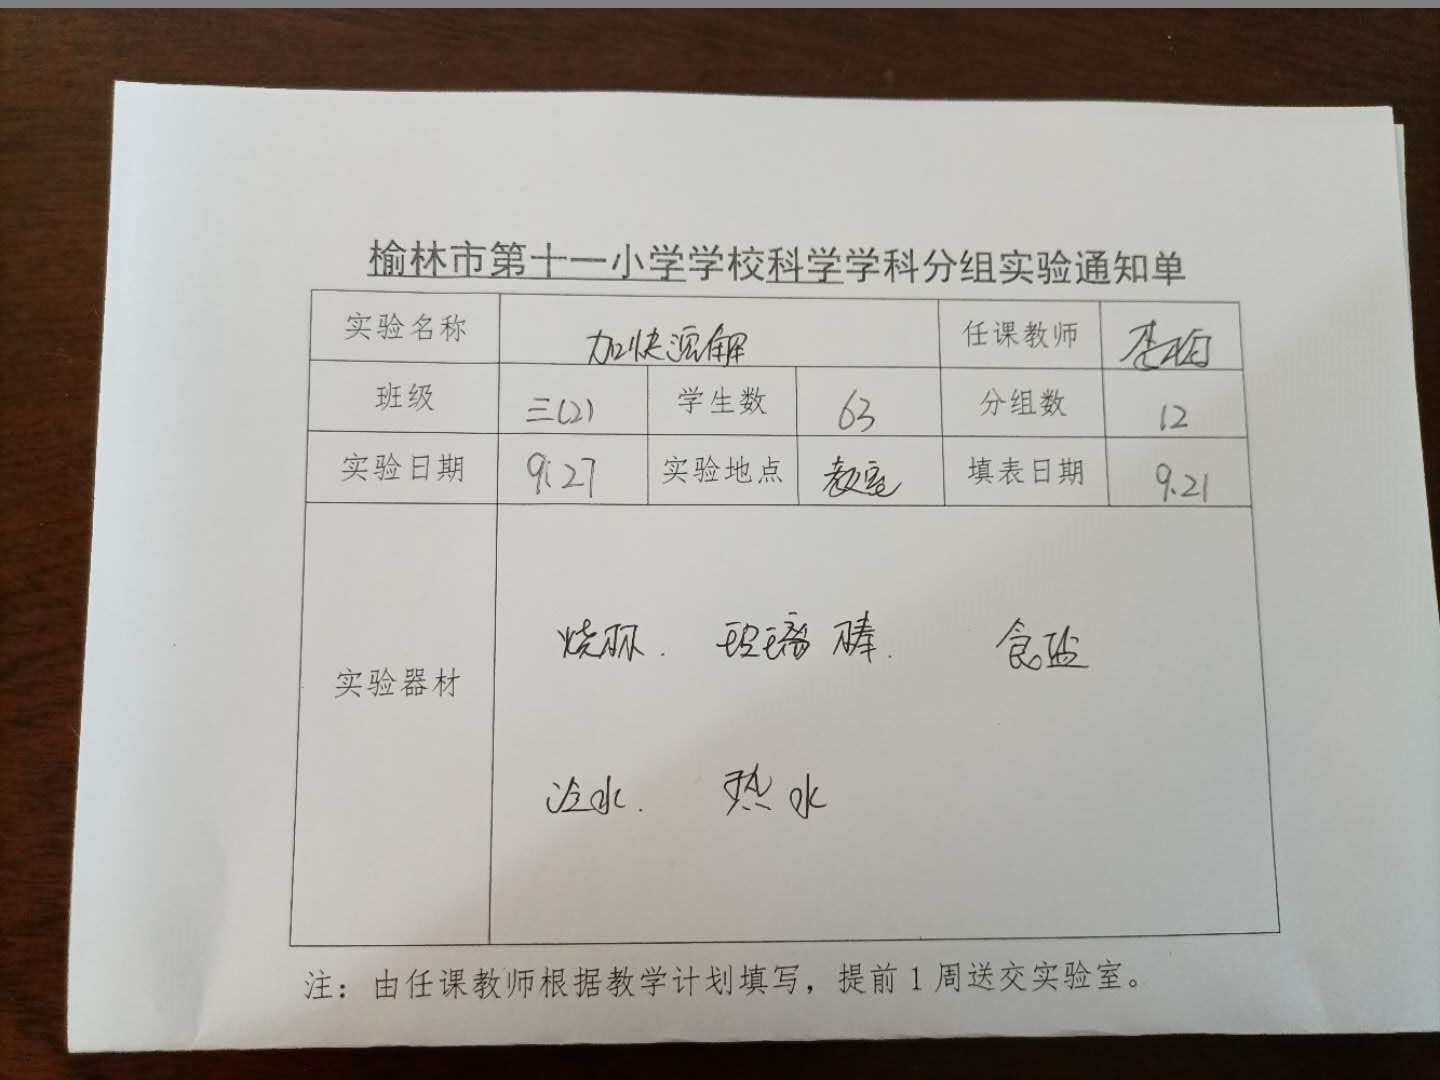 榆林市第十一小学学校科学学科分组实验通知单
实验名称 加快溶解 任课教师
班级 三(2) 学生数 63 分组数 12
实验日期 9.27 实验地点 教室 填表日期 9.21
实验器材
烧杯. 玻璃棒. 食盐
冷水. 热水
注：由任课教师根据教学计划填写，提前1周送交实验室。